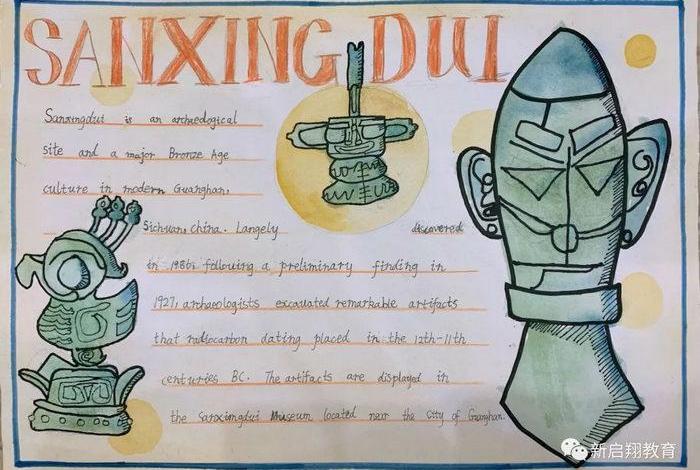 SANXING DUI
Sanxingdui is an archaeological
site and a major Bronze Age
culture in modern Guanghan,
Sichuan, China. Langely discovered
in 1986, following a preliminary finding in
1927, archaeologists excauated remarkable artifacts
that radiocarbon dating placed in the 12th-11th
centuries BC. The artifacts are displayed in
the Sanximgdui Museum located near the city of Guanghan.
新启翔教育